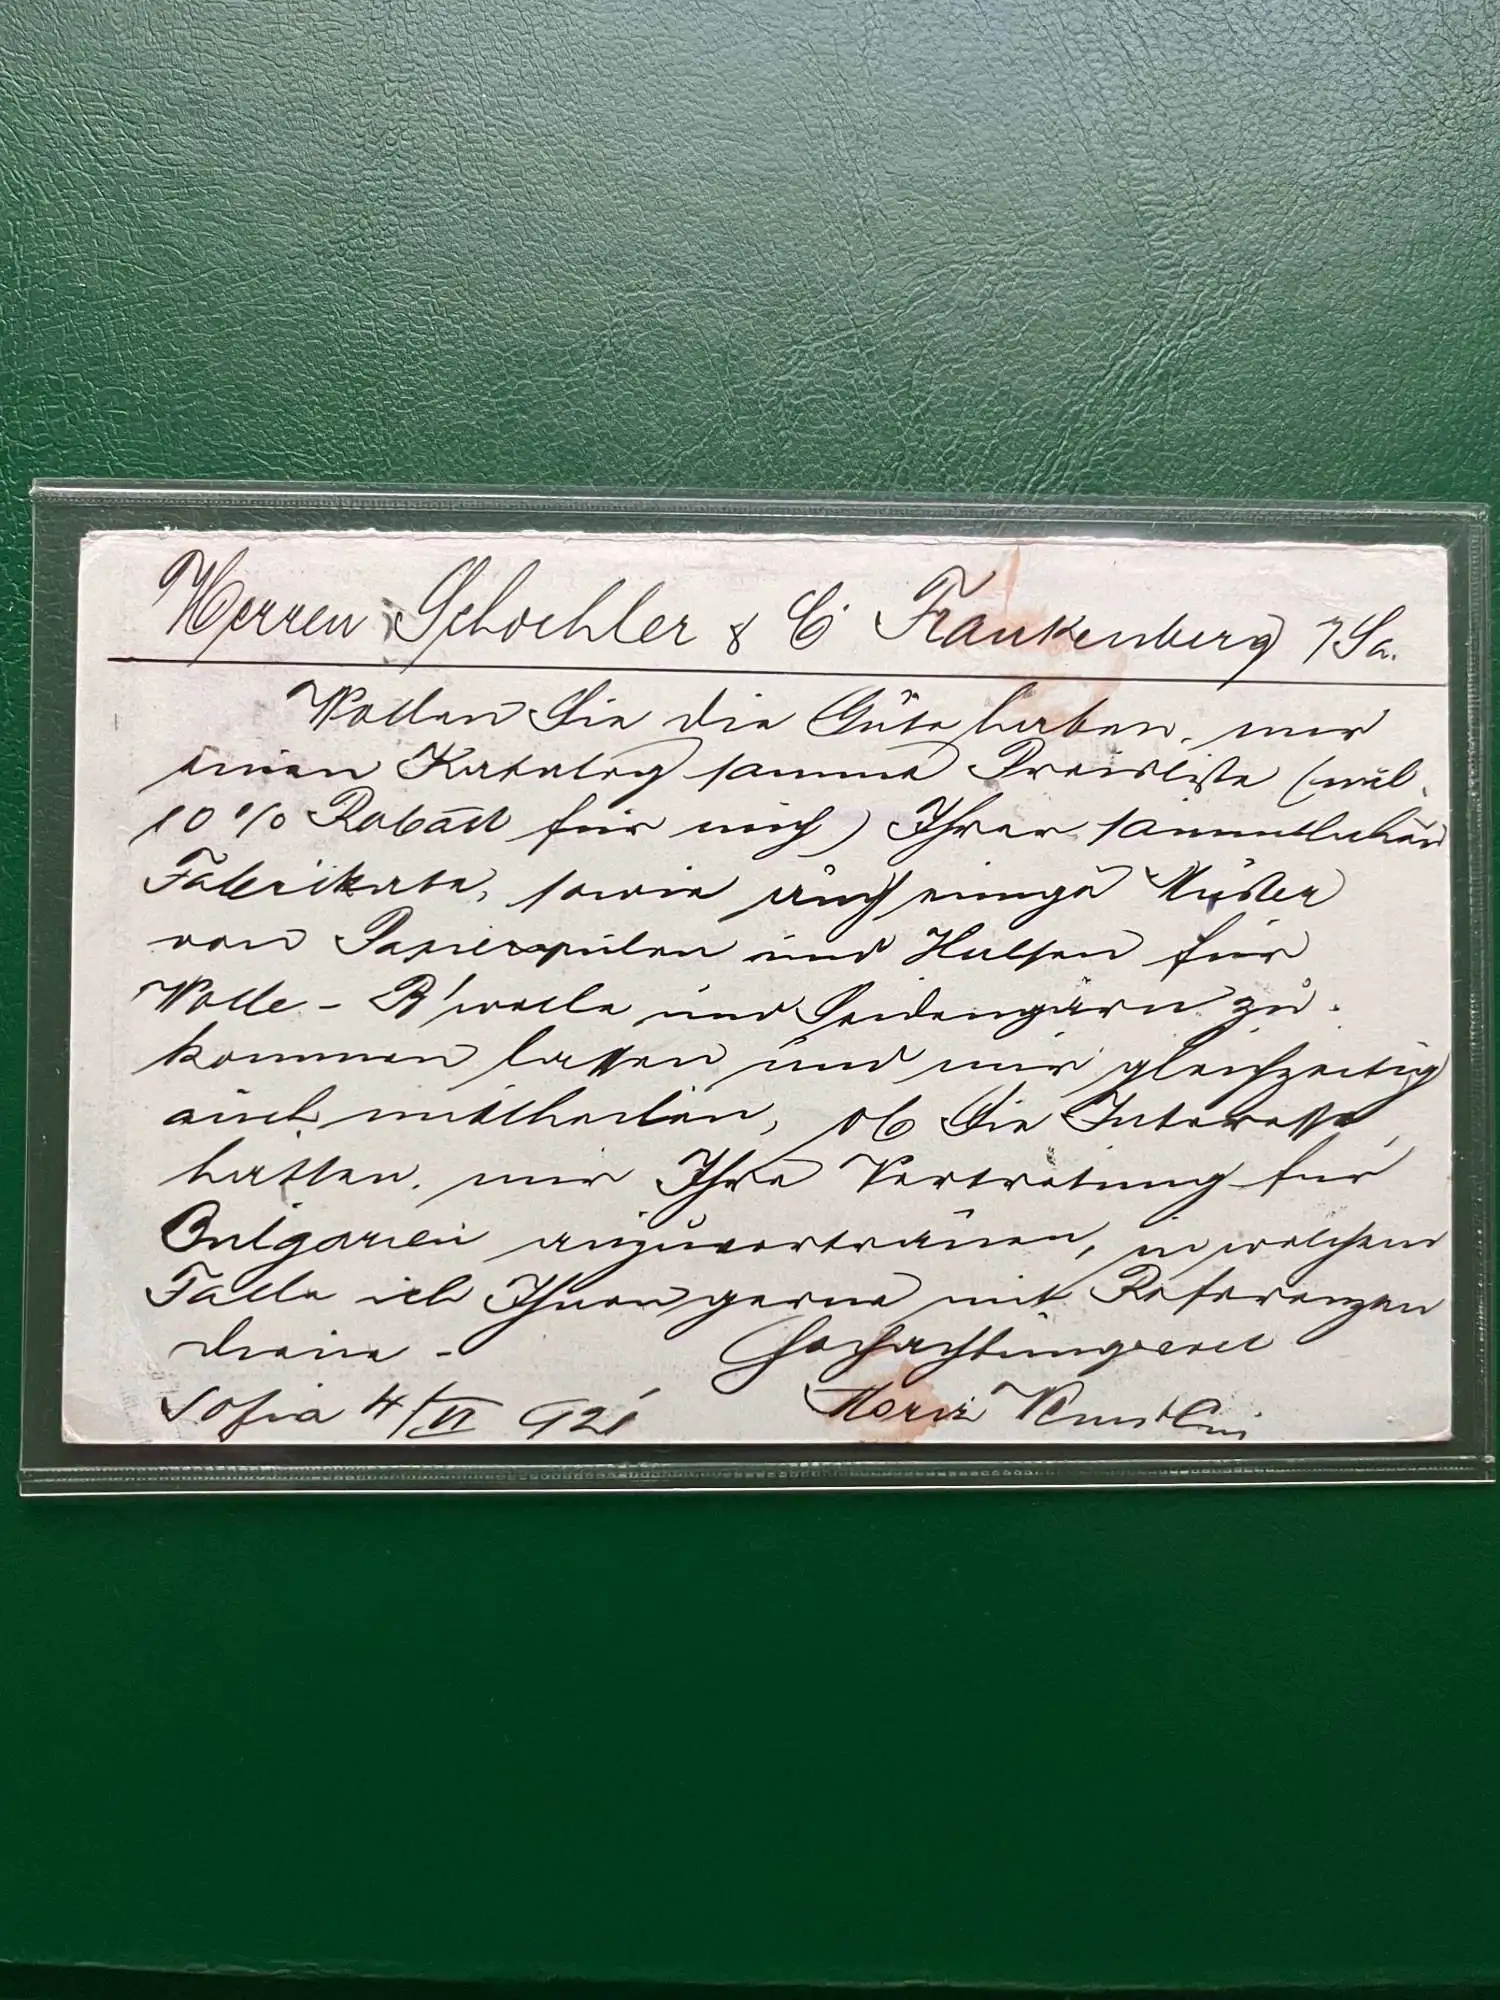 Herren Schoehler & Co Frankenberg i/Sa.
Wollen Sie die Güte haben, mir
einen Katalog sammt Preisliste (inkl.
10% Rabatt für mich) Ihrer sämmtlichen
Fabrikate, sowie auch einige Muster
von Papierspulen und Hülsen für
Wolle - B'wolle und Seidengarn zu-
kommen lassen und mir gleichzeitig
auch mittheilen, ob Sie Interesse
hätten, mir Ihre Vertretung für
Bulgarien anzuvertrauen, in welchem
Falle ich Ihnen gerne mit Referenzen
diene -
Hochachtungsvoll
Sofia 4/VI 921
Moriz